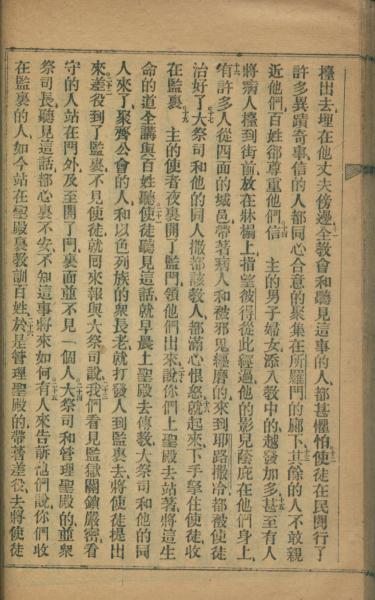 擡出去、埋在他丈夫傍邊、十一全敎會和聽見這事的人、都甚懼怕、十二使徒在民間行了
許多異蹟奇事、信的人都同心合意的聚集在所羅門的廊下、十三其餘的人不敢親
近他們、百姓卻尊重他們、十四信 主的男子婦女添入敎中的越發加多、十五甚至有人
將病人擡到街前、放在牀榻上、指望彼得從此經過、他的影兒蔭庇在他們身上、
十六有許多人從四面的城邑、帶著病人和被邪鬼經磨的、來到耶路撒冷、都被使徒
治好了、十七大祭司和他的同人撒都該敎人、都滿心恨怒、十八就起來、下手拏住使徒、收
在監裏、十九主的使者夜裏開了監門、領他們出來、說、二十你們上聖殿去站著、將這生
命的道、全講與百姓聽、二十一使徒聽見這話、就早晨上聖殿去傳敎、大祭司和他的同
人來了、聚齊公會的人、和以色列族的衆長老、就打發人到監裏去、將使徒提出
來、二十二差役到了監裏、不見使徒、就回來報與大祭司說、二十三我們看見監獄關鎖嚴密、看
守的人站在門外、及至開了門、裏面並不見一個人、二十四大祭司和管理聖殿的、並衆
祭司長、聽見這話、都心裏不安、不知這事將來如何、二十五有人來告訴他們說、你們收
在監裏的人、如今站在聖殿裏敎訓百姓、二十六於是管理聖殿的、帶著差役去、將使徒